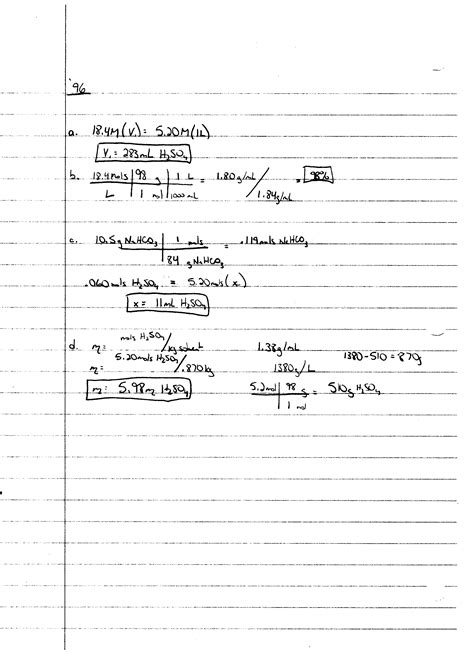 '96
a. 18.4M(V₁) = 5.20M(1L)
V₁ = 283mL H₂SO₄
b. 18.4mols | 98 g | 1 L = 1.80g/mL / 1.84g/mL = 98%
L | 1 mol | 1000mL
c. 10.5g NaHCO₃ | 1 mols = .119mols NaHCO₃
84 g NaHCO₃
.060mols H₂SO₄ = 5.20mols(x)
x = 11mL H₂SO₄
d. m = mols H₂SO₄ / kg solvent 1.38g/mL 1380-510 = 870g
m = 5.20mols H₂SO₄ / .870kg 1380g/L
m = 5.98m H₂SO₄ 5.2mol | 98 g = 510g H₂SO₄
1 mol